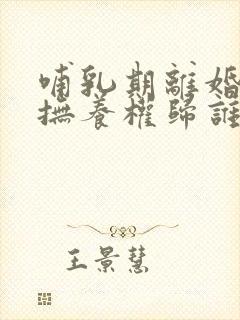 哺乳期離婚
撫養權歸誰
王景慧